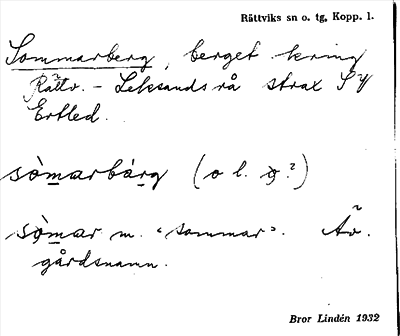 Rättviks sn o. tg, Kopp. l.
Sommarberg, berget kring
Rättv. - Leksands rå strax S
Ertled.
sòmarbárg (o l. ?)
sòmar m. "sommar". Äv.
gårdsnamn.
Bror Lindén 1932